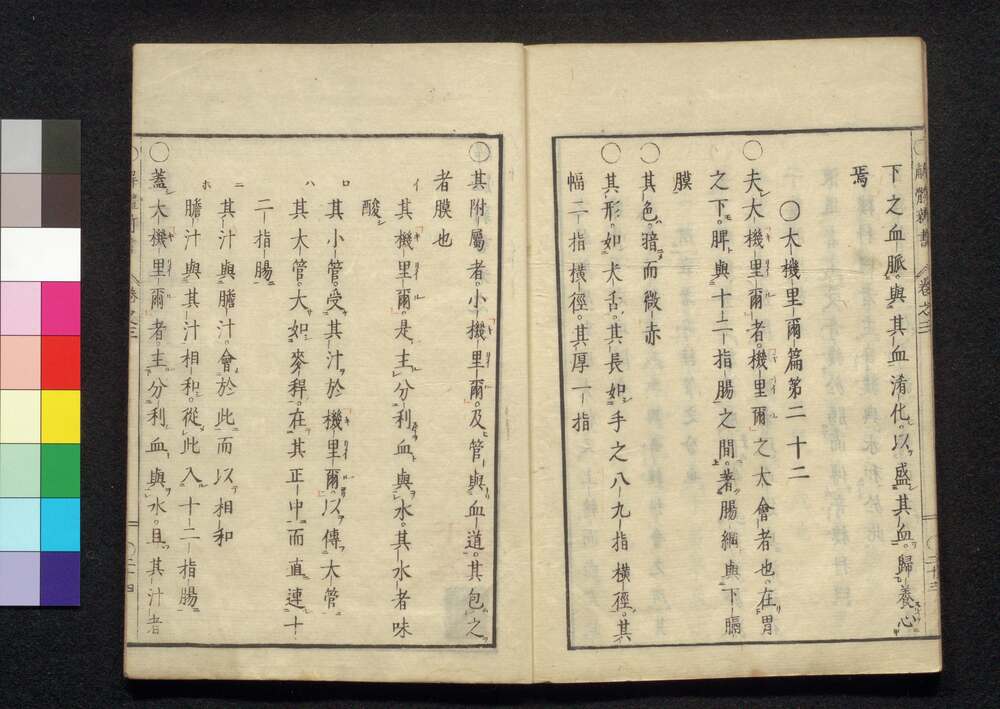 下之血脈與其血淆化以盛其血歸養心
焉
○大機里爾篇第二十二
○夫大機里爾者機里爾之大會者也在胃
之下脾與十二指腸之間著腸網與下膈
膜
○其色暗而微赤
○其形如犬舌其長如手之八九指橫徑其
幅二指橫徑其厚一指
解體新書 卷之三
○其附屬者小機里爾及管與血道其包之
者膜也
イ 其機里爾是主分利血與水其水者味
酸
ロ 其小管受其汁於機里爾以傳大管
ハ 其大管大如麥稈在其正中而直連十
二指腸
ニ 其汁與膽汁會於此而以相和
ホ 膽汁與其汁相和從此入十二指腸
○蓋大機里爾者主分利血與水且其汁者